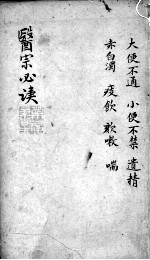 大便不通 小便不禁 遺精
赤白濁 痰飲 咳嗽 喘
醫宗必读